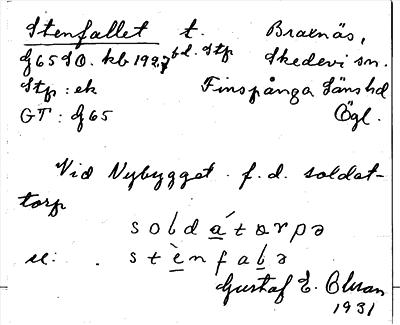 Stenfallet t. Braxnäs,
f65SO. kb 1927 bd. Stp Skedevi sn.
Stp: ek Finspånga läns hd
GT: f65 Ögl.
Vid Nybygget f.d. soldat-
torp
soldátorpə
u: . stènfalə
Gustaf E. Ohman
1931